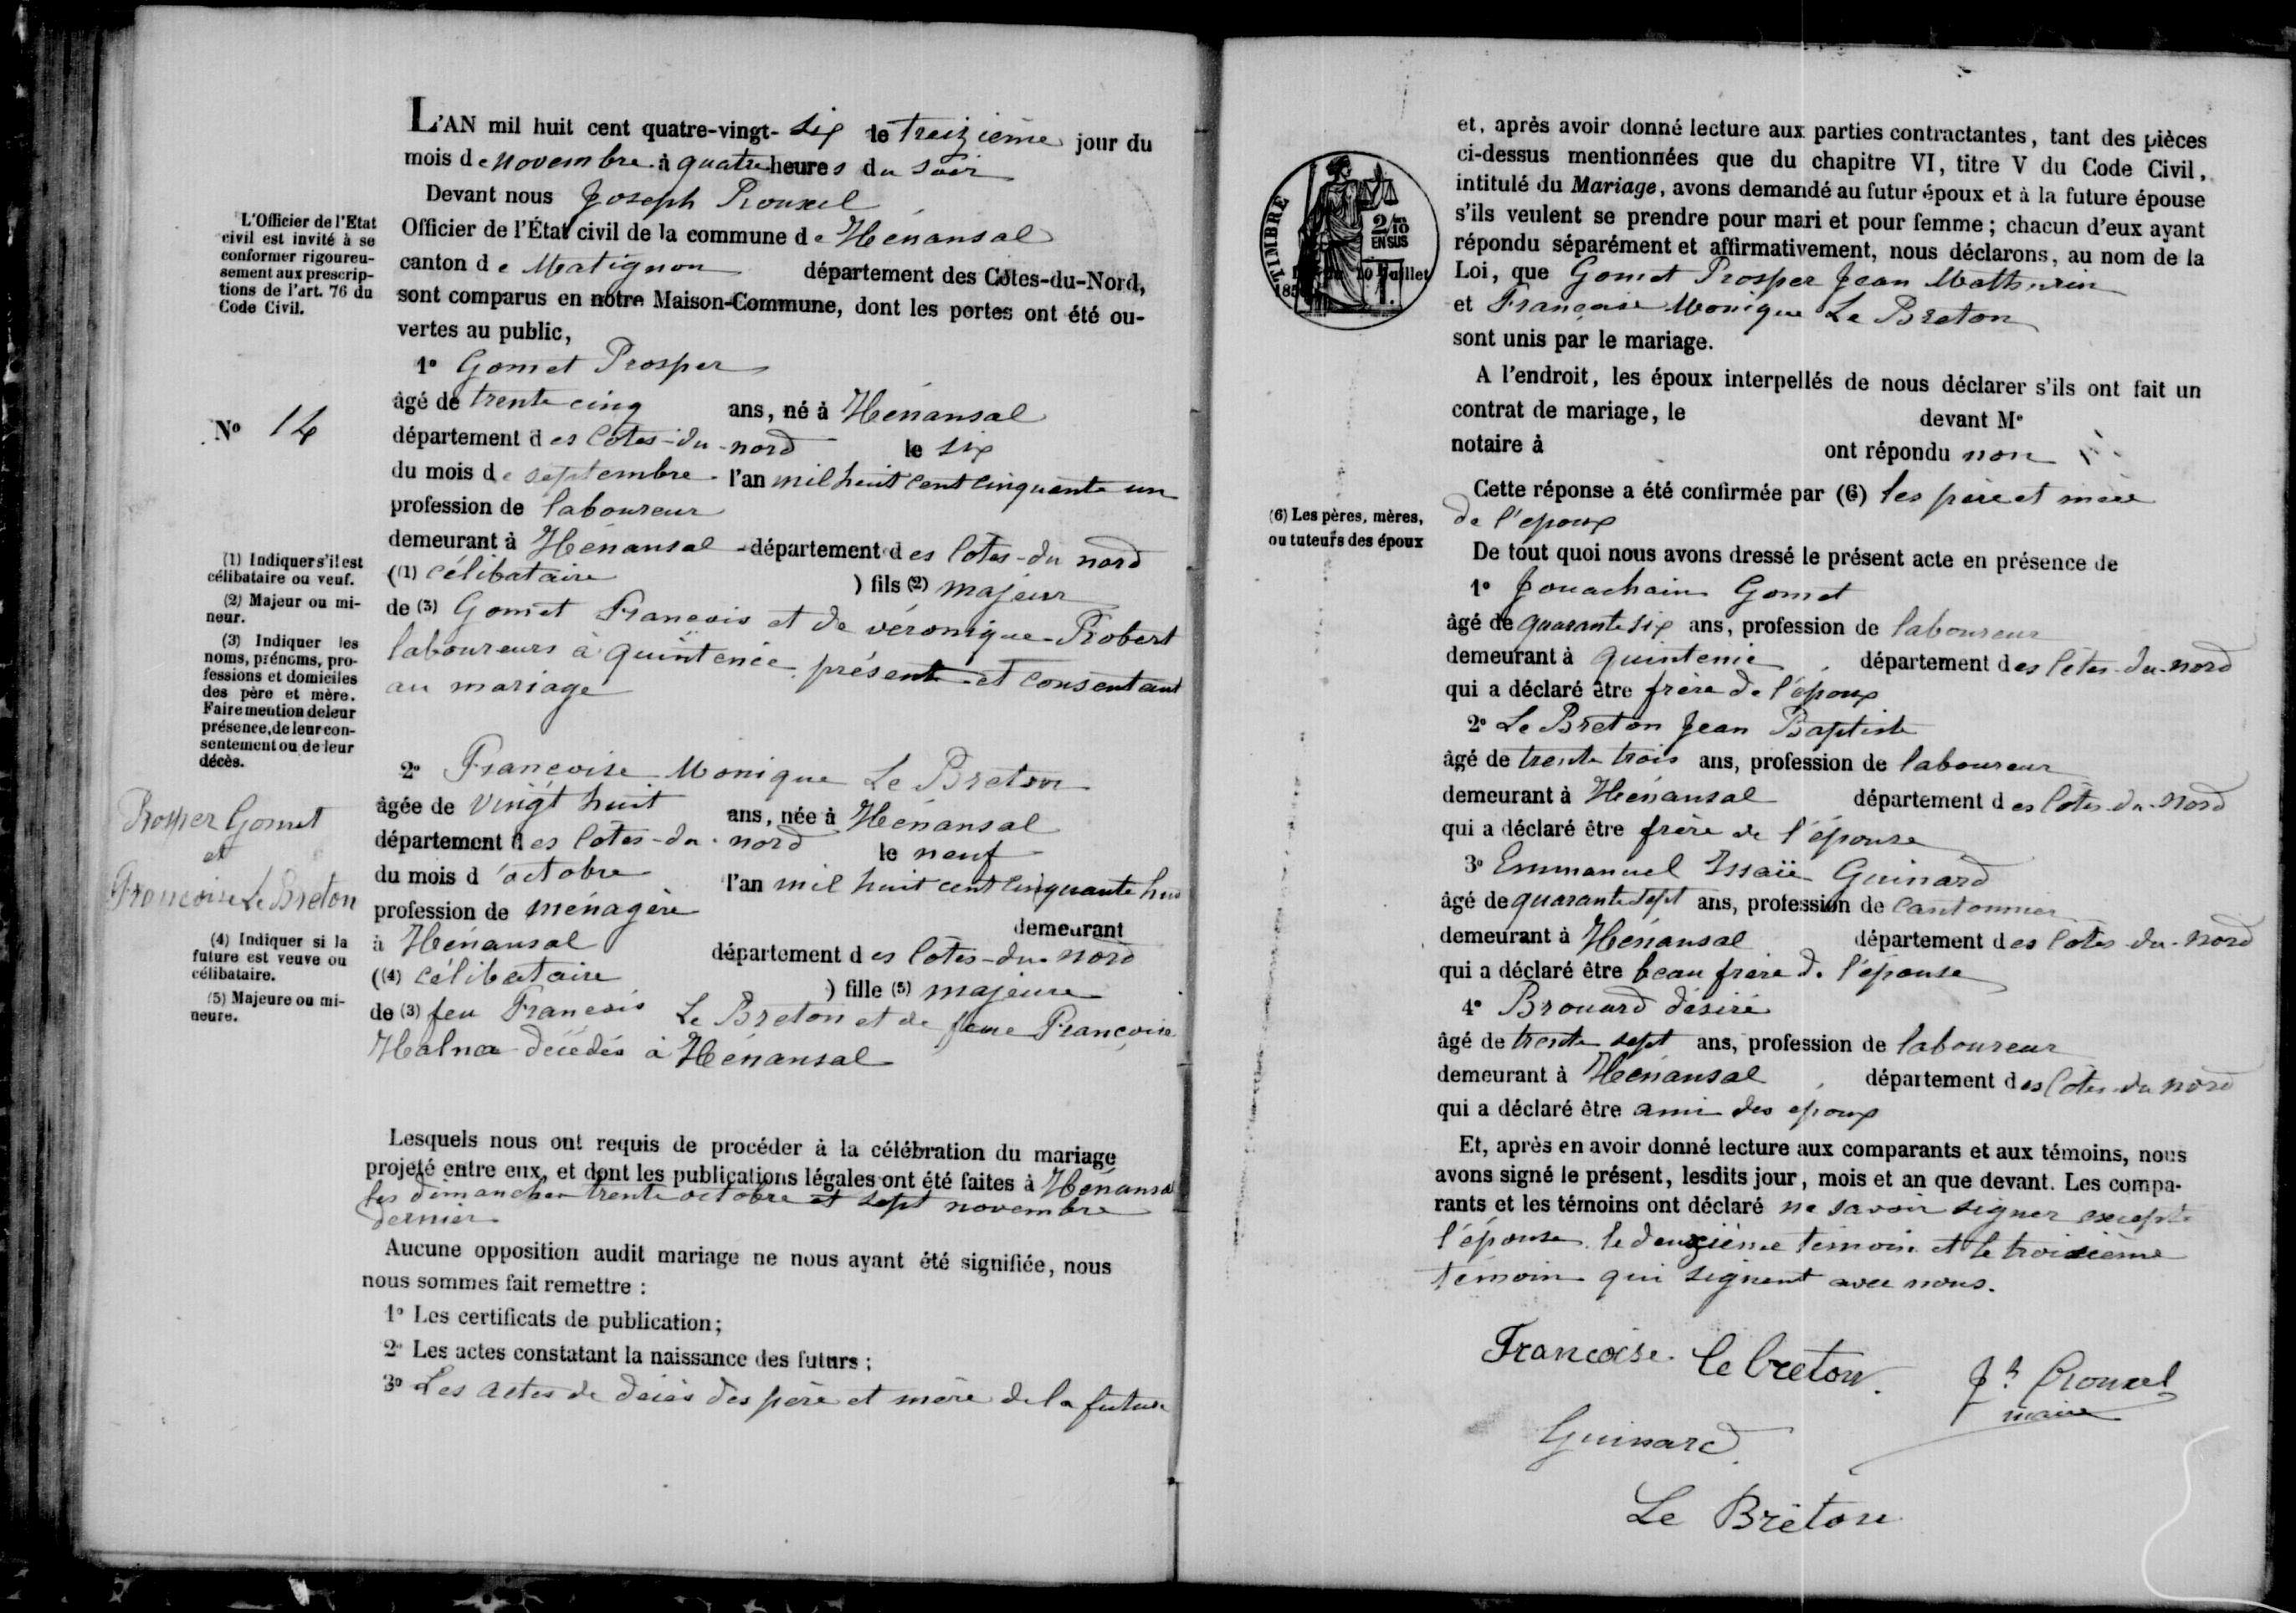 L'AN mil huit cent quatre-vingt- six le treizième jour du
mois de novembre à quatre heures du soir
Devant nous Joseph Rouxel
Officier de l'État civil de la commune de Hénansal
canton de Matignon département des Côtes-du-Nord,
sont comparus en notre Maison-Commune, dont les portes ont été ou-
vertes au public,
1° Gomet Prosper
âgé de trente cinq ans, né à Hénansal
département des Côtes-du-nord le six
du mois de septembre l'an mil huit cent cinquante un
profession de laboureur
demeurant à Hénansal département des Côtes-du nord
((1) célibataire ) fils (2) majeur
de (3) Gomet Francois et de véronique Robert
laboureurs à quintenic présent et consentant
au mariage
2° Françoise Monique Le Breton
âgée de vingt huit ans, née à Hénansal
département des Côtes-du-nord le neuf
du mois d'octobre l'an mil huit cent cinquante huit
profession de ménagère demeurant
à Hénansal département des Côtes-du-Nord
((4) célibataire ) fille (5) majeure
de (3) feu Francois Le Breton et de feue Françoise
Halna décédés à Hénansal
Lesquels nous ont requis de procéder à la célébration du mariage
projeté entre eux, et dont les publications légales ont été faites à Hénansal
les dimanches trente octobre et sept novembre
dernier
Aucune opposition audit mariage ne nous ayant été signifiée, nous
nous sommes fait remettre :
1° Les certificats de publication;
2° Les actes constatant la naissance des futurs ;
3° Les actes de décès des père et mère de la future
L'Officier de l'Etat
civil est invité à se
conformer rigoureu-
sement aux prescrip-
tions de l'art. 76 du
Code Civil.
N° 14
(1) Indiquer s'il est
célibataire ou veuf.
(2) Majeur ou mi-
neur.
(3) Indiquer les
noms, prénoms, pro-
fessions et domiciles
des père et mère.
Faire mention de leur
présence, de leur con-
sentement ou de leur
décès.
Prosper Gomet
et
Francoise Le Breton
(4) Indiquer si la
future est veuve ou
célibataire.
(5) Majeure ou mi-
neure.
TIMBRE
2/10
EN SUS
10 Juillet
et, après avoir donné lecture aux parties contractantes, tant des pièces
ci-dessus mentionnées que du chapitre VI, titre V du Code Civil,
intitulé du Mariage, avons demandé au futur époux et à la future épouse
s'ils veulent se prendre pour mari et pour femme ; chacun d'eux ayant
répondu séparément et affirmativement, nous déclarons, au nom de la
Loi, que Gomet Prosper Jean Mathurin
et Françoise Monique Le Breton
sont unis par le mariage.
A l'endroit, les époux interpellés de nous déclarer s'ils ont fait un
contrat de mariage, le devant Me
notaire à ont répondu non
Cette réponse a été confirmée par (6) les père et mère
de l'epoux
(6) Les pères, mères,
ou tuteurs des époux
De tout quoi nous avons dressé le présent acte en présence de
1° Jouachain Gomet
âgé de quarante six ans, profession de laboureur
demeurant à quintenic département des Côtes-du-nord
qui a déclaré être frère de l'époux
2° Le Breton Jean Baptiste
âgé de trente trois ans, profession de laboureur
demeurant à Hénansal département des Côtes-du-Nord
qui a déclaré être frère de l'épouse
3° Emmanuel Issaïe Guinard
âgé de quarante sept ans, profession de cantonnier
demeurant à Hénansal département des Côtes-du-Nord
qui a déclaré être beau frère de l'épouse
4° Brouard désiré
âgé de trente sept ans, profession de laboureur
demeurant à Hénansal département des Côtes-du nord
qui a déclaré être ami des epoux
Et, après en avoir donné lecture aux comparants et aux témoins, nous
avons signé le présent, lesdits jour, mois et an que devant. Les compa-
rants et les témoins ont déclaré ne savoir signer excepté
l'épouse le deuxième témoin et le troisième
témoin qui signent avec nous.
Francoise le breton.
Jh Rouxel
maire
Guinard
Le Breton